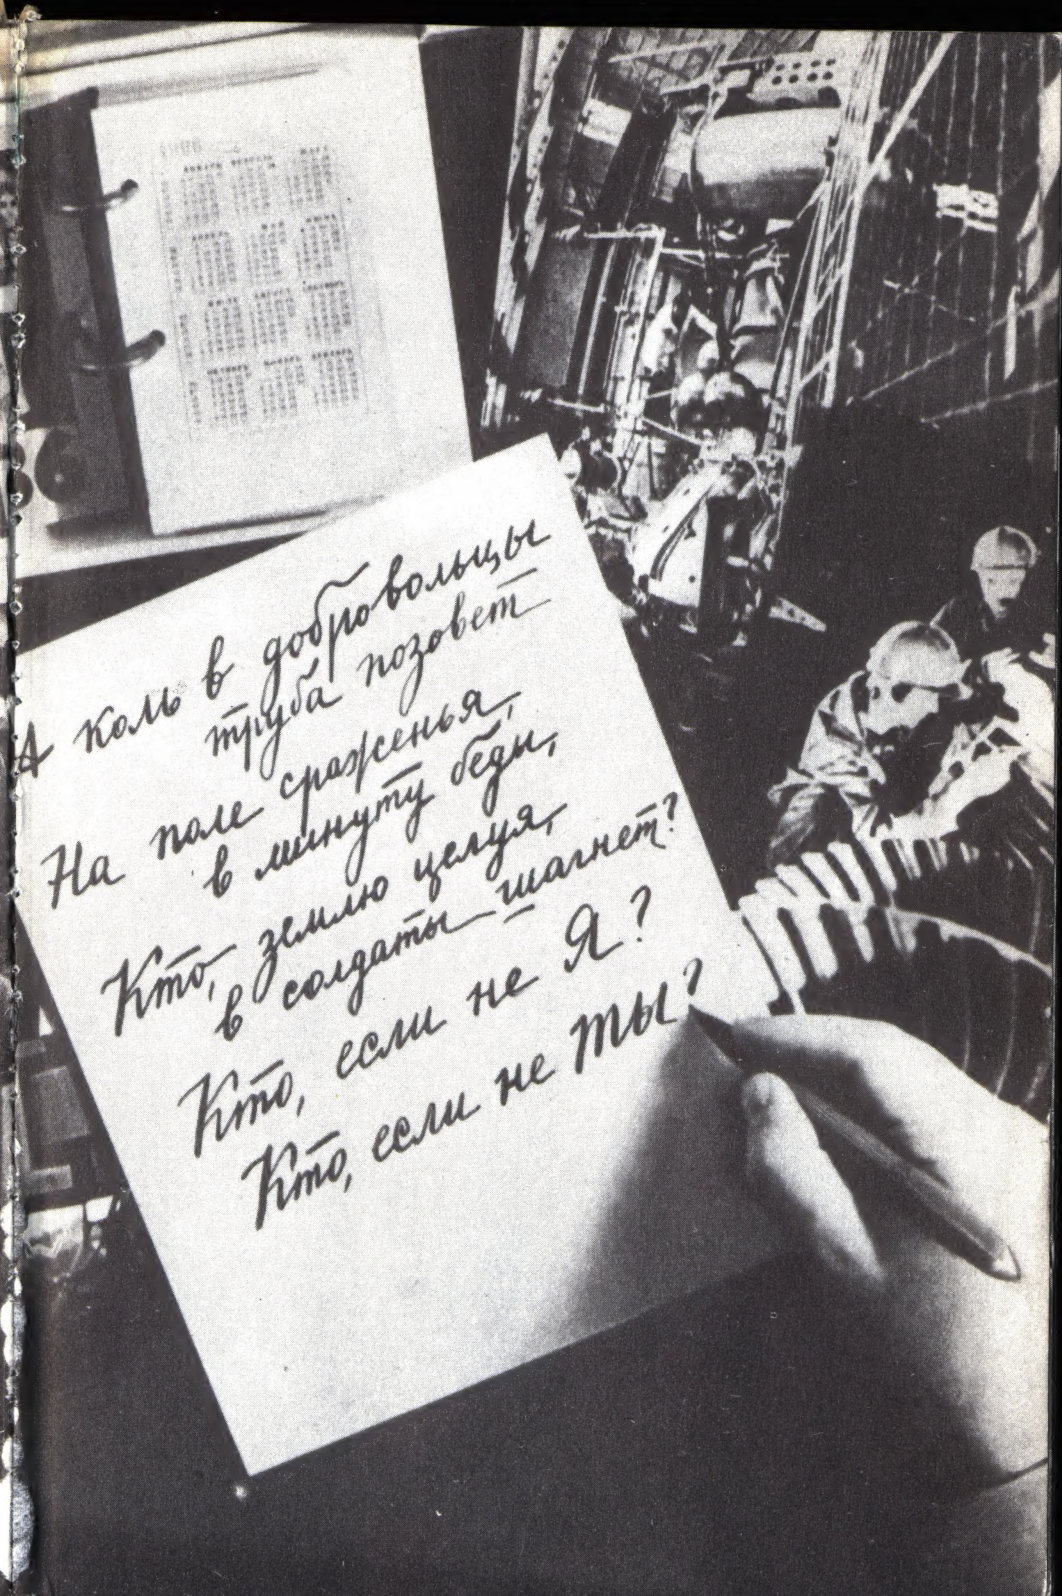 А коль в добровольцы
труба позовет
На поле сраженья,
в минуту беды,
Кто, землю целуя,
в солдаты шагнет?
Кто, если не Я?
Кто, если не ТЫ?